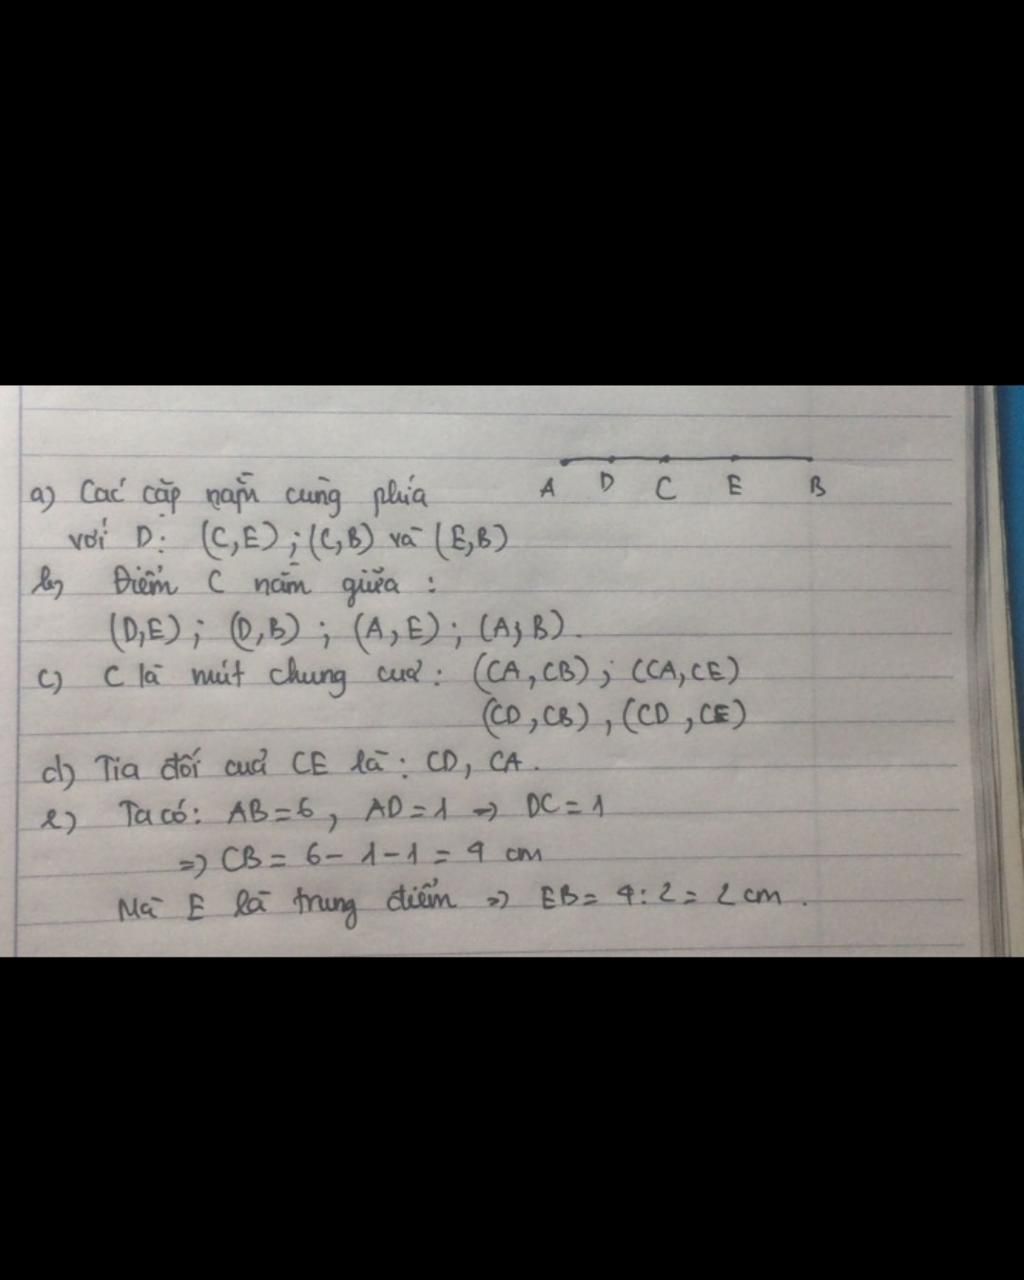 A D C E B
a) Các cặp nằm cùng phía
với D: (C,E); (C,B) và (E,B)
b) Điểm C nằm giữa :
(D,E) ; (D,B) ; (A,E) ; (A;B).
c) C là mút chung của: (CA,CB) ; (CA,CE)
(CD,CB) , (CD,CE)
d) Tia đối của CE là: CD, CA.
e) Ta có: AB=6, AD=1 => DC=1
=> CB = 6-1-1 = 4 cm
Mà E là trung điểm => EB= 4:2= 2cm.